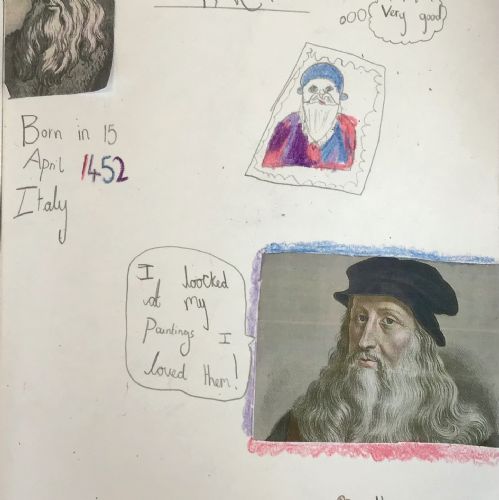 Very good
Born in 15
April 1452
Italy
I loocked
at my
Paintings I
loved them!